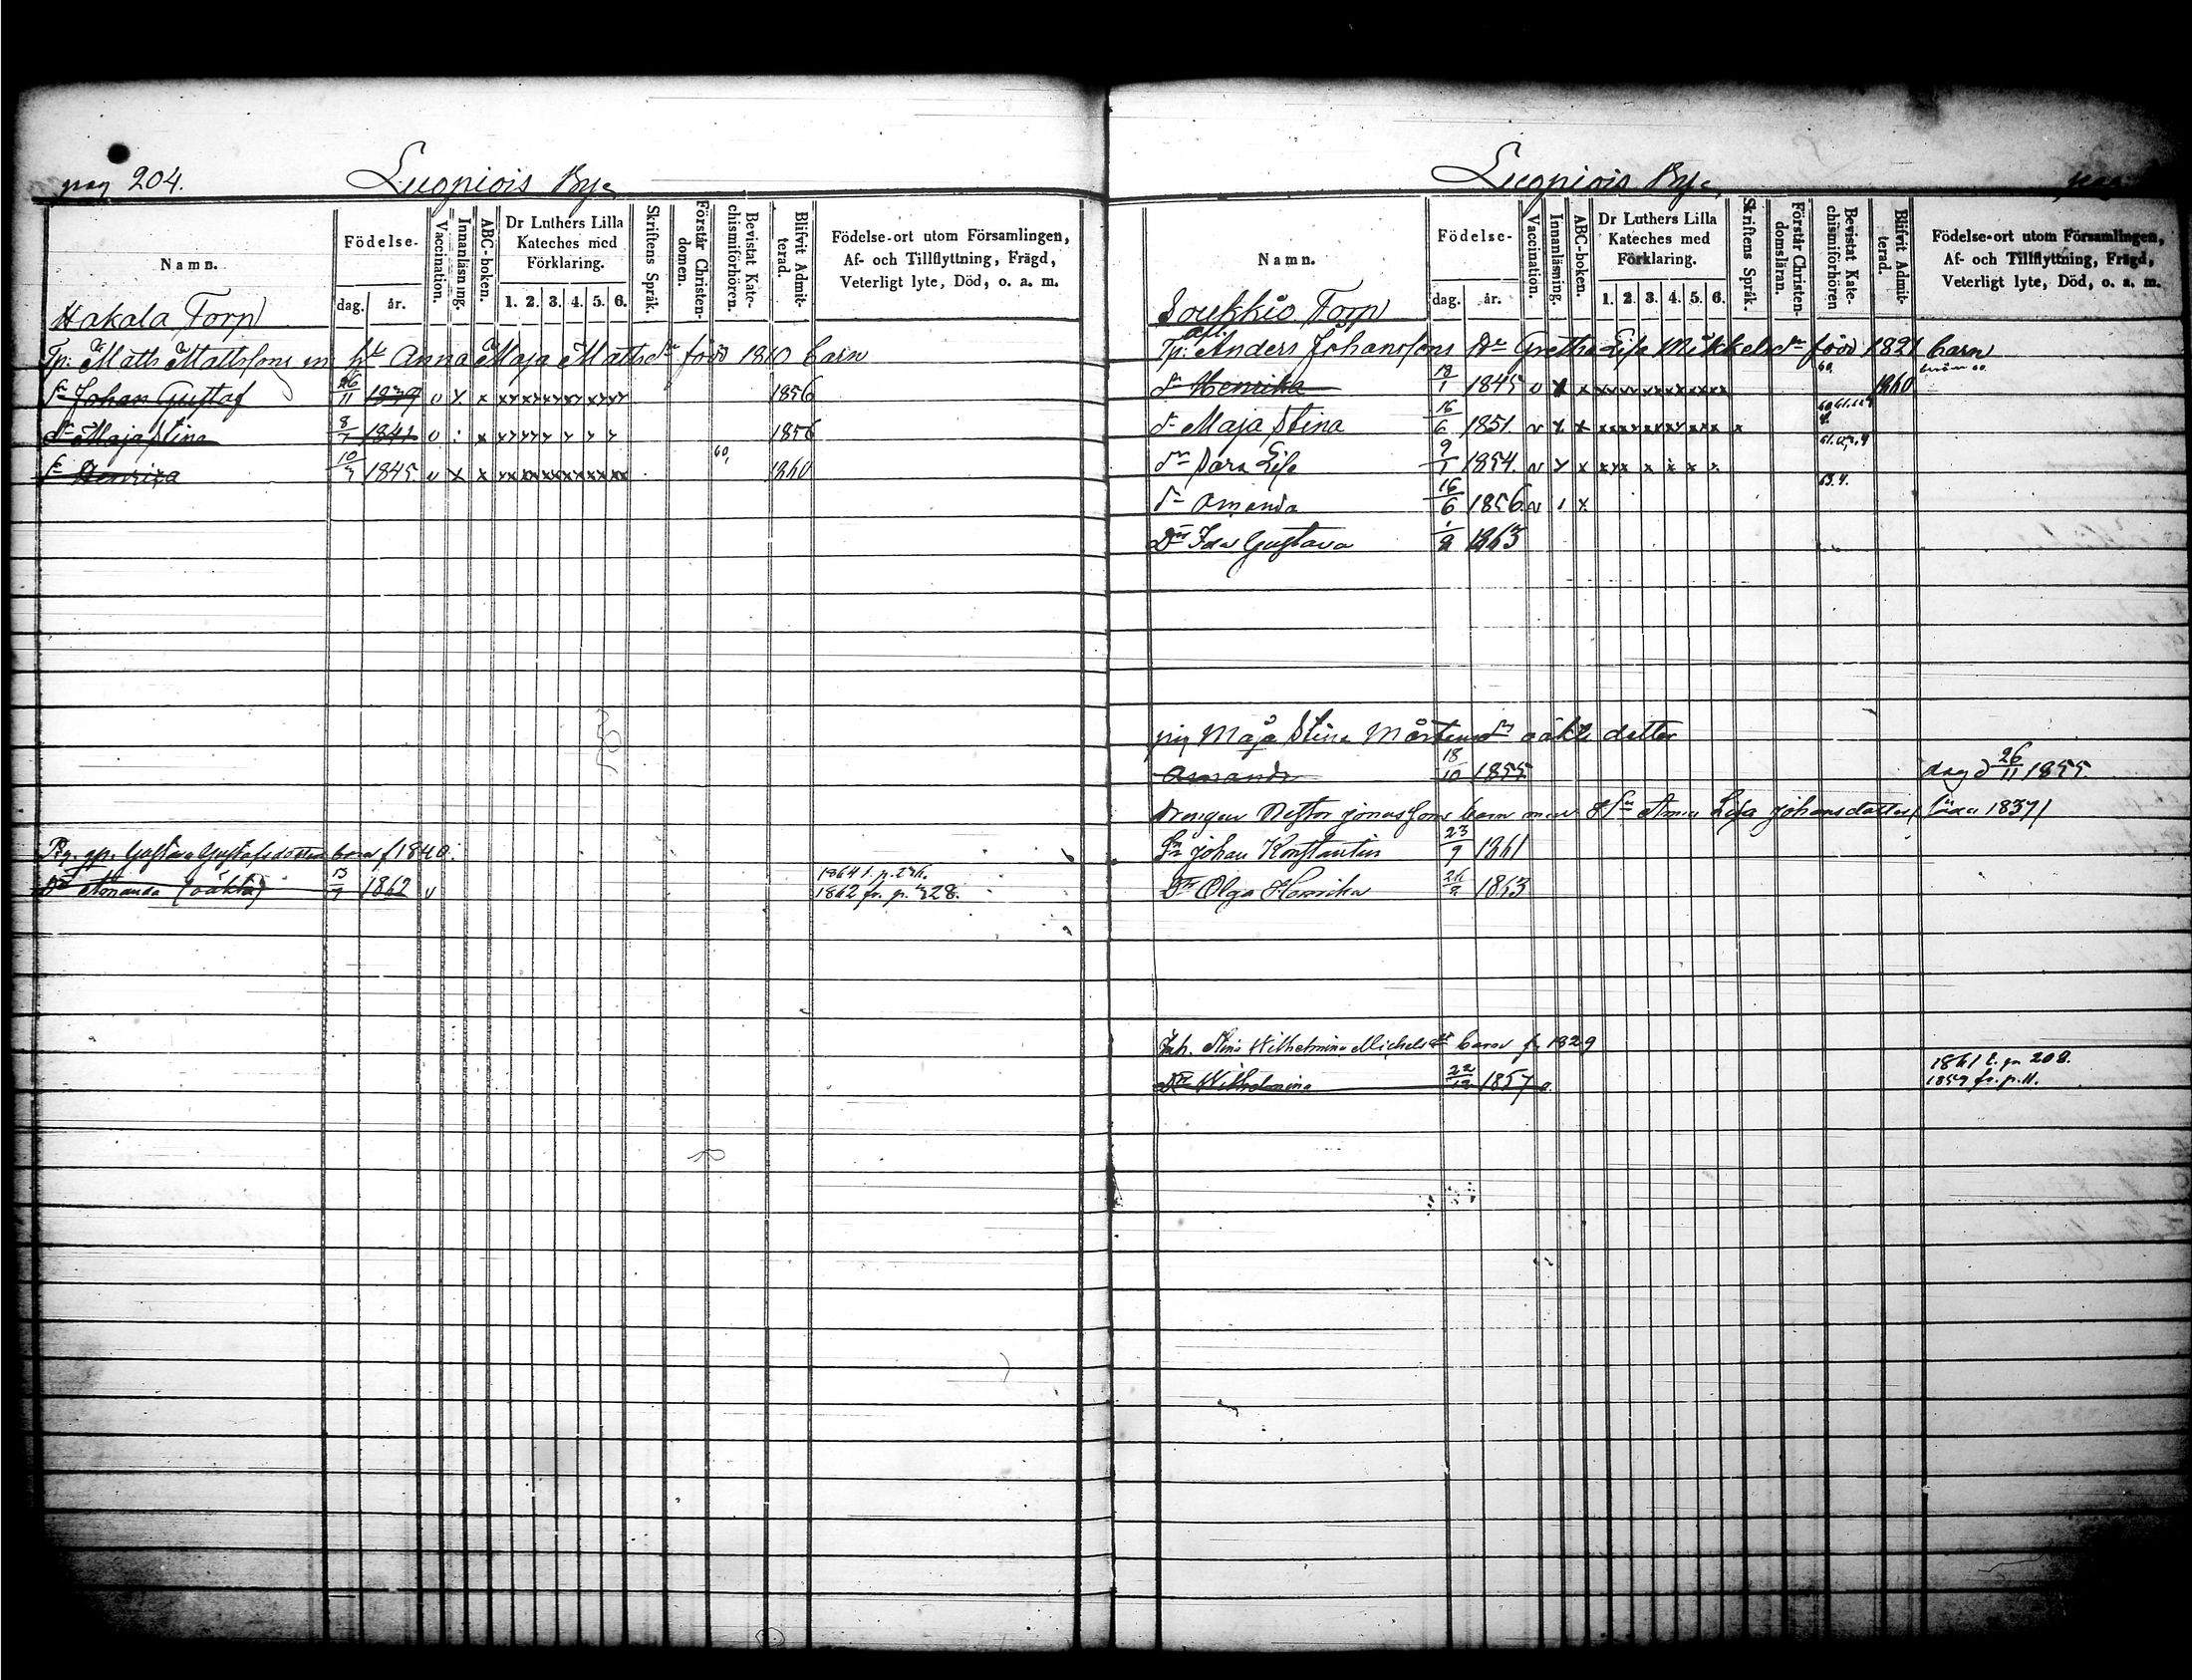 pag 204.
Lugniois By
Namn.
Födelse-
dag.
år.
Vaccination.
Innanläsning.
ABC-boken.
Dr Luthers Lilla Kateches med Förklaring.
1. 2. 3. 4. 5. 6.
Skriftens Språk.
Förstår Christen-domen.
Bevistat Kate-chismiförhören.
Blifvit Admit-terad.
Födelse-ort utom Församlingen, Af- och Tillflyttning, Frägd, Veterligt lyte, Död, o. a. m.
Hakala Torp
Tp: Matts Mattssons m h. Anna Maja Mattsdr född 1810 barn
Sn Johan Gustaf 26/11 1839 v x x 1856
dr Maja Stina 8/7 1841 v x 1856
Henrica 10/7 1845 v x x 60, 1860
Pig. Gustava Gustafsdotters barn f 1840.
Dr Amanda (oäkta) 13/9 1862 v 1864 t. p. 1862 fr. p. 228.
Lugniois By
pag.
Namn.
Födelse-
dag.
år.
Vaccination.
Innanläsning.
ABC-boken.
Dr Luthers Lilla Kateches med Förklaring.
1. 2. 3. 4. 5. 6.
Skriftens Språk.
Förstår Christen-domsläran.
Bevistat Kate-chismiförhören
Blifvit Admit-terad.
Födelse-ort utom Församlingen, Af- och Tillflyttning, Frägd, Veterligt lyte, Död, o. a. m.
Soukkio Torp
Tp: Anders Johanssons Gretha Lisa Mikkelsdr född 1821 barn
dr Henrika 18/1 1845 v x x 60. 1860
dr Maja Stina 16/6 1851. v x x
dr Sara Lisa 9/1 1854. v x x
dr Amanda 16/6 1856 v x 63. 4.
Dr Ida Gustava 1863
pig Maja Stina Mårtensdr oäkta dotter
Amanda 18/10 1855 död 26/11 1855.
Drengen Nestor Jonassons barn med Anna Lisa Johansdotter 1837
Sn Johan Konstantin 23/9 1861
Dr Olga Henrika 1863
Inh. Stina Wilhelmina Michelsdr barn f. 1829
Dr Wilhelmina 22/12 1857 v 1861 t. p. 208.
1859 fr. p. 11.